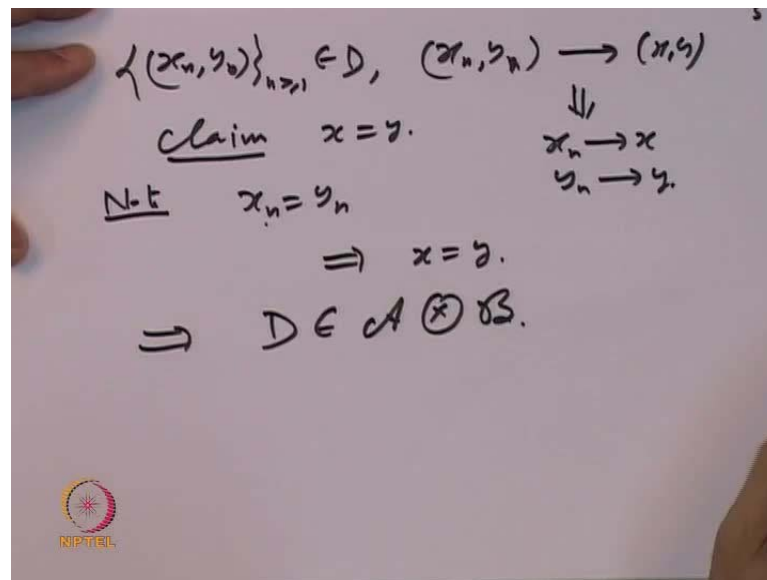 {(xₙ, yₙ)}ₙ≥₁ ∈ D, (xₙ, yₙ) ⟶ (x, y)
⇓
Claim x = y. xₙ ⟶ x
yₙ ⟶ y.
Not xₙ = yₙ
⟹ x = y.
⟹ D ∈ A ⊗ B.
NPTEL